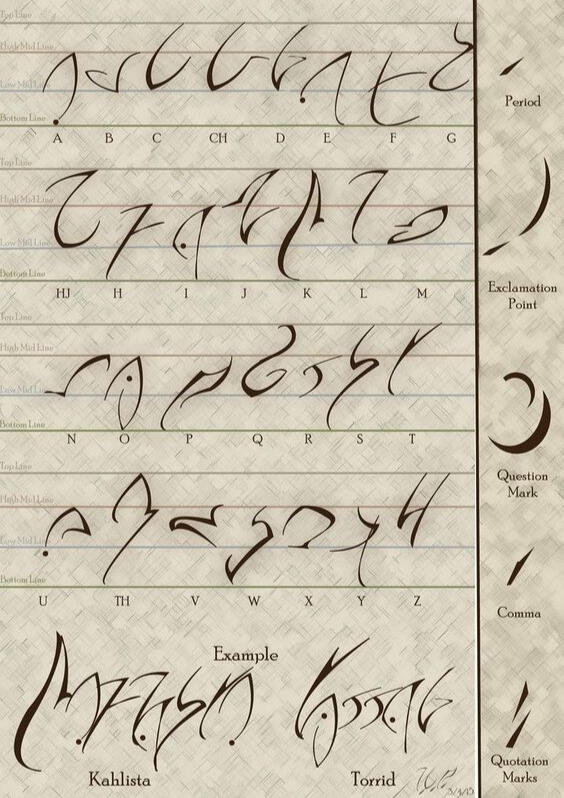 Top Line
High Mid Line
Low Mid Line
Bottom Line
A B C CH D E F G
Top Line
High Mid Line
Low Mid Line
Bottom Line
HJ H I J K L M
Top Line
High Mid Line
Low Mid Line
Bottom Line
N O P Q R S T
Top Line
High Mid Line
Low Mid Line
Bottom Line
U TH V W X Y Z
Example
Kahlista Torrid
Period
Exclamation
Point
Question
Mark
Comma
Quotation
Marks